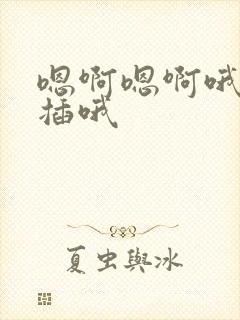 嗯啊嗯啊哦
插哦
夏虫與冰